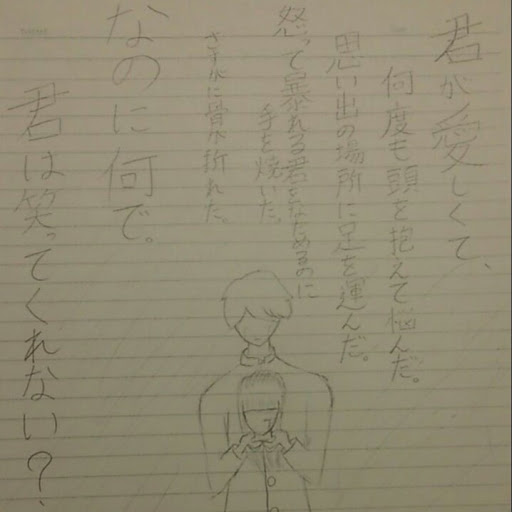 君が愛しくて、
何度も頭を抱えて悩んだ。
思い出の場所に足を運んだ。
怒って暴れる君をなだめるのに
手を焼いた。
さすがに骨が折れた。
なのに何で。
君は笑ってくれない？